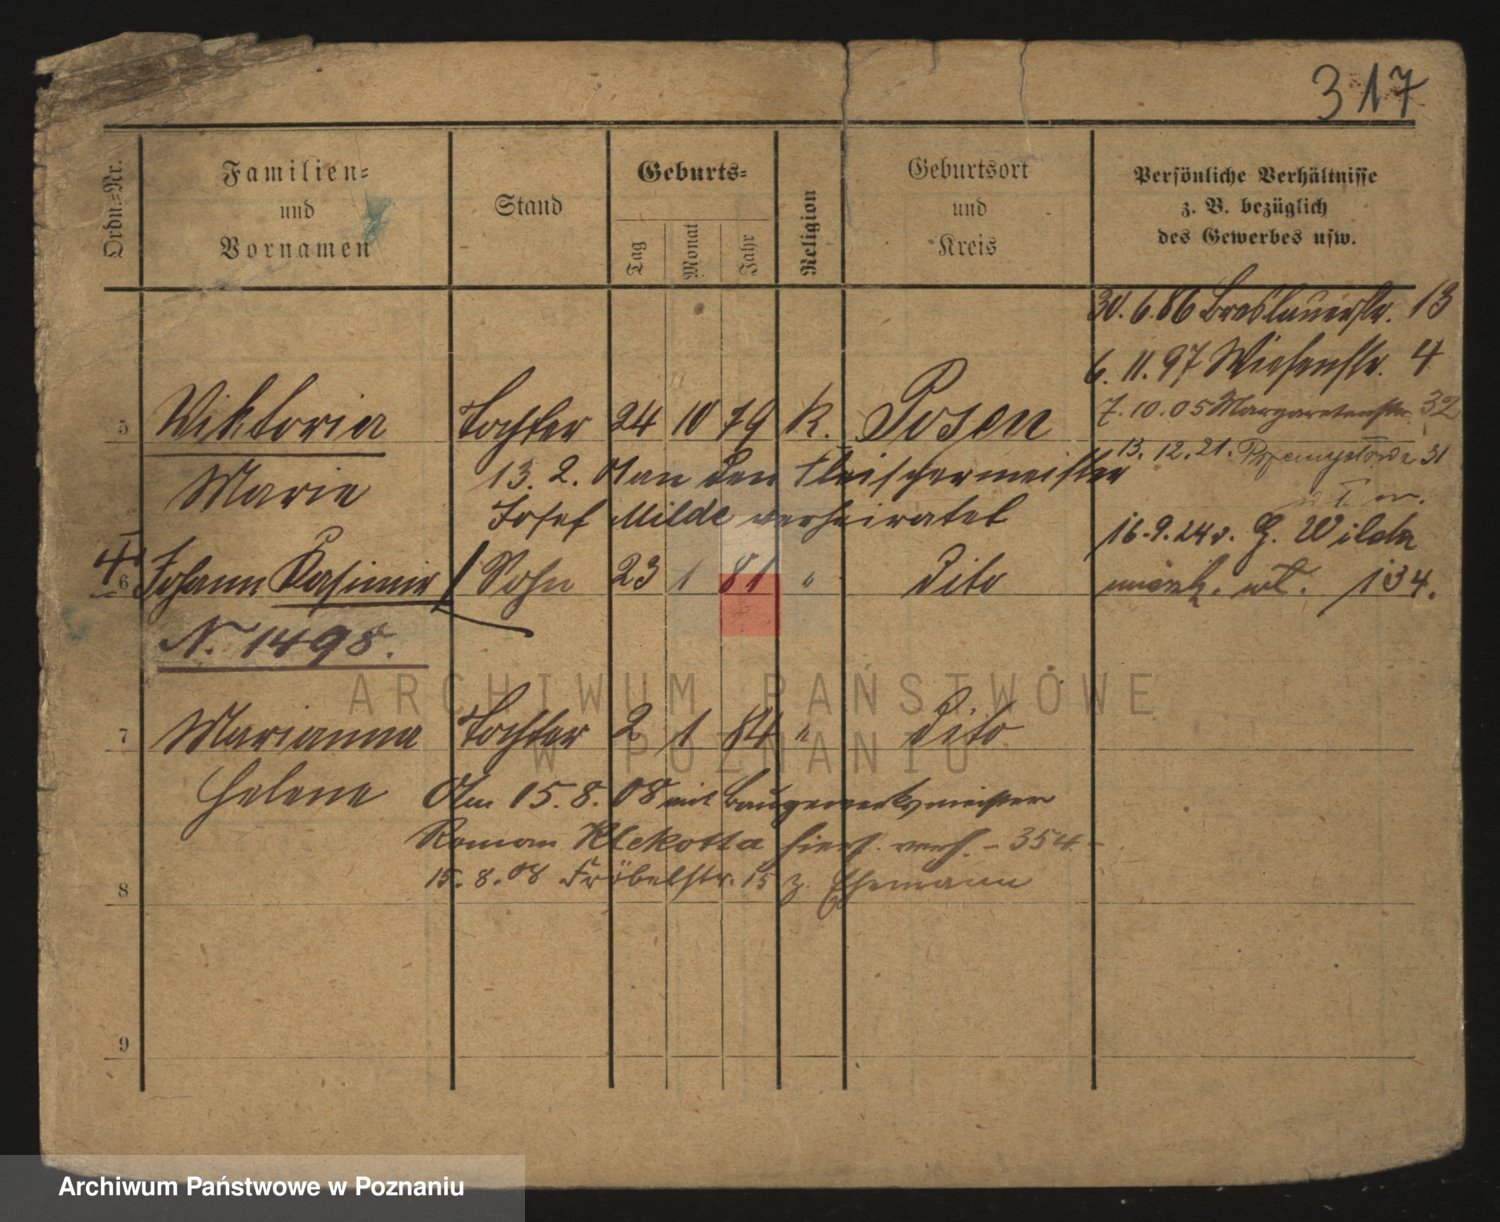 317
Ordn.-Nr.
Familien-
und
Vornamen
Stand
Geburts-
Tag
Monat
Jahr
Religion
Geburtsort
und
Kreis
Persönliche Verhältnisse
z. B. bezüglich
des Gewerbes usw.
30. 6. 86 Breslauerstr. 13
6. 11. 97 Wiesenstr. 4
7. 10. 05 Margaretenstr. 32
13. 12. 21. 31
16. 9. 24 v. G. Wilda
134.
5 Viktoria Tochter 24 10 79 k. Posen
Marie 13. 2. 01 an den Fleischermeister
Josef Milde verheiratet
6 Johann Kasimir Sohn 23 1 81 " Dito
N. 1498.
7 Marianna Tochter 2 1 84 " Dito
Helene Am 15. 8. 08 mit Baugewerksmeister
Roman Klekotta hier verh. - 354 -
8 15. 8. 08 Fröbelstr. 15 z. Ehemann
9
ARCHIWUM PAŃSTWOWE
W POZNANIU
Archiwum Państwowe w Poznaniu